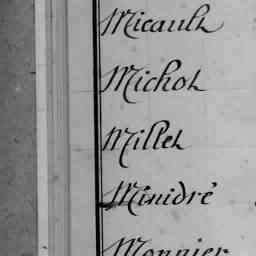 Micault
Michot
Millet
Minidré
Monnier